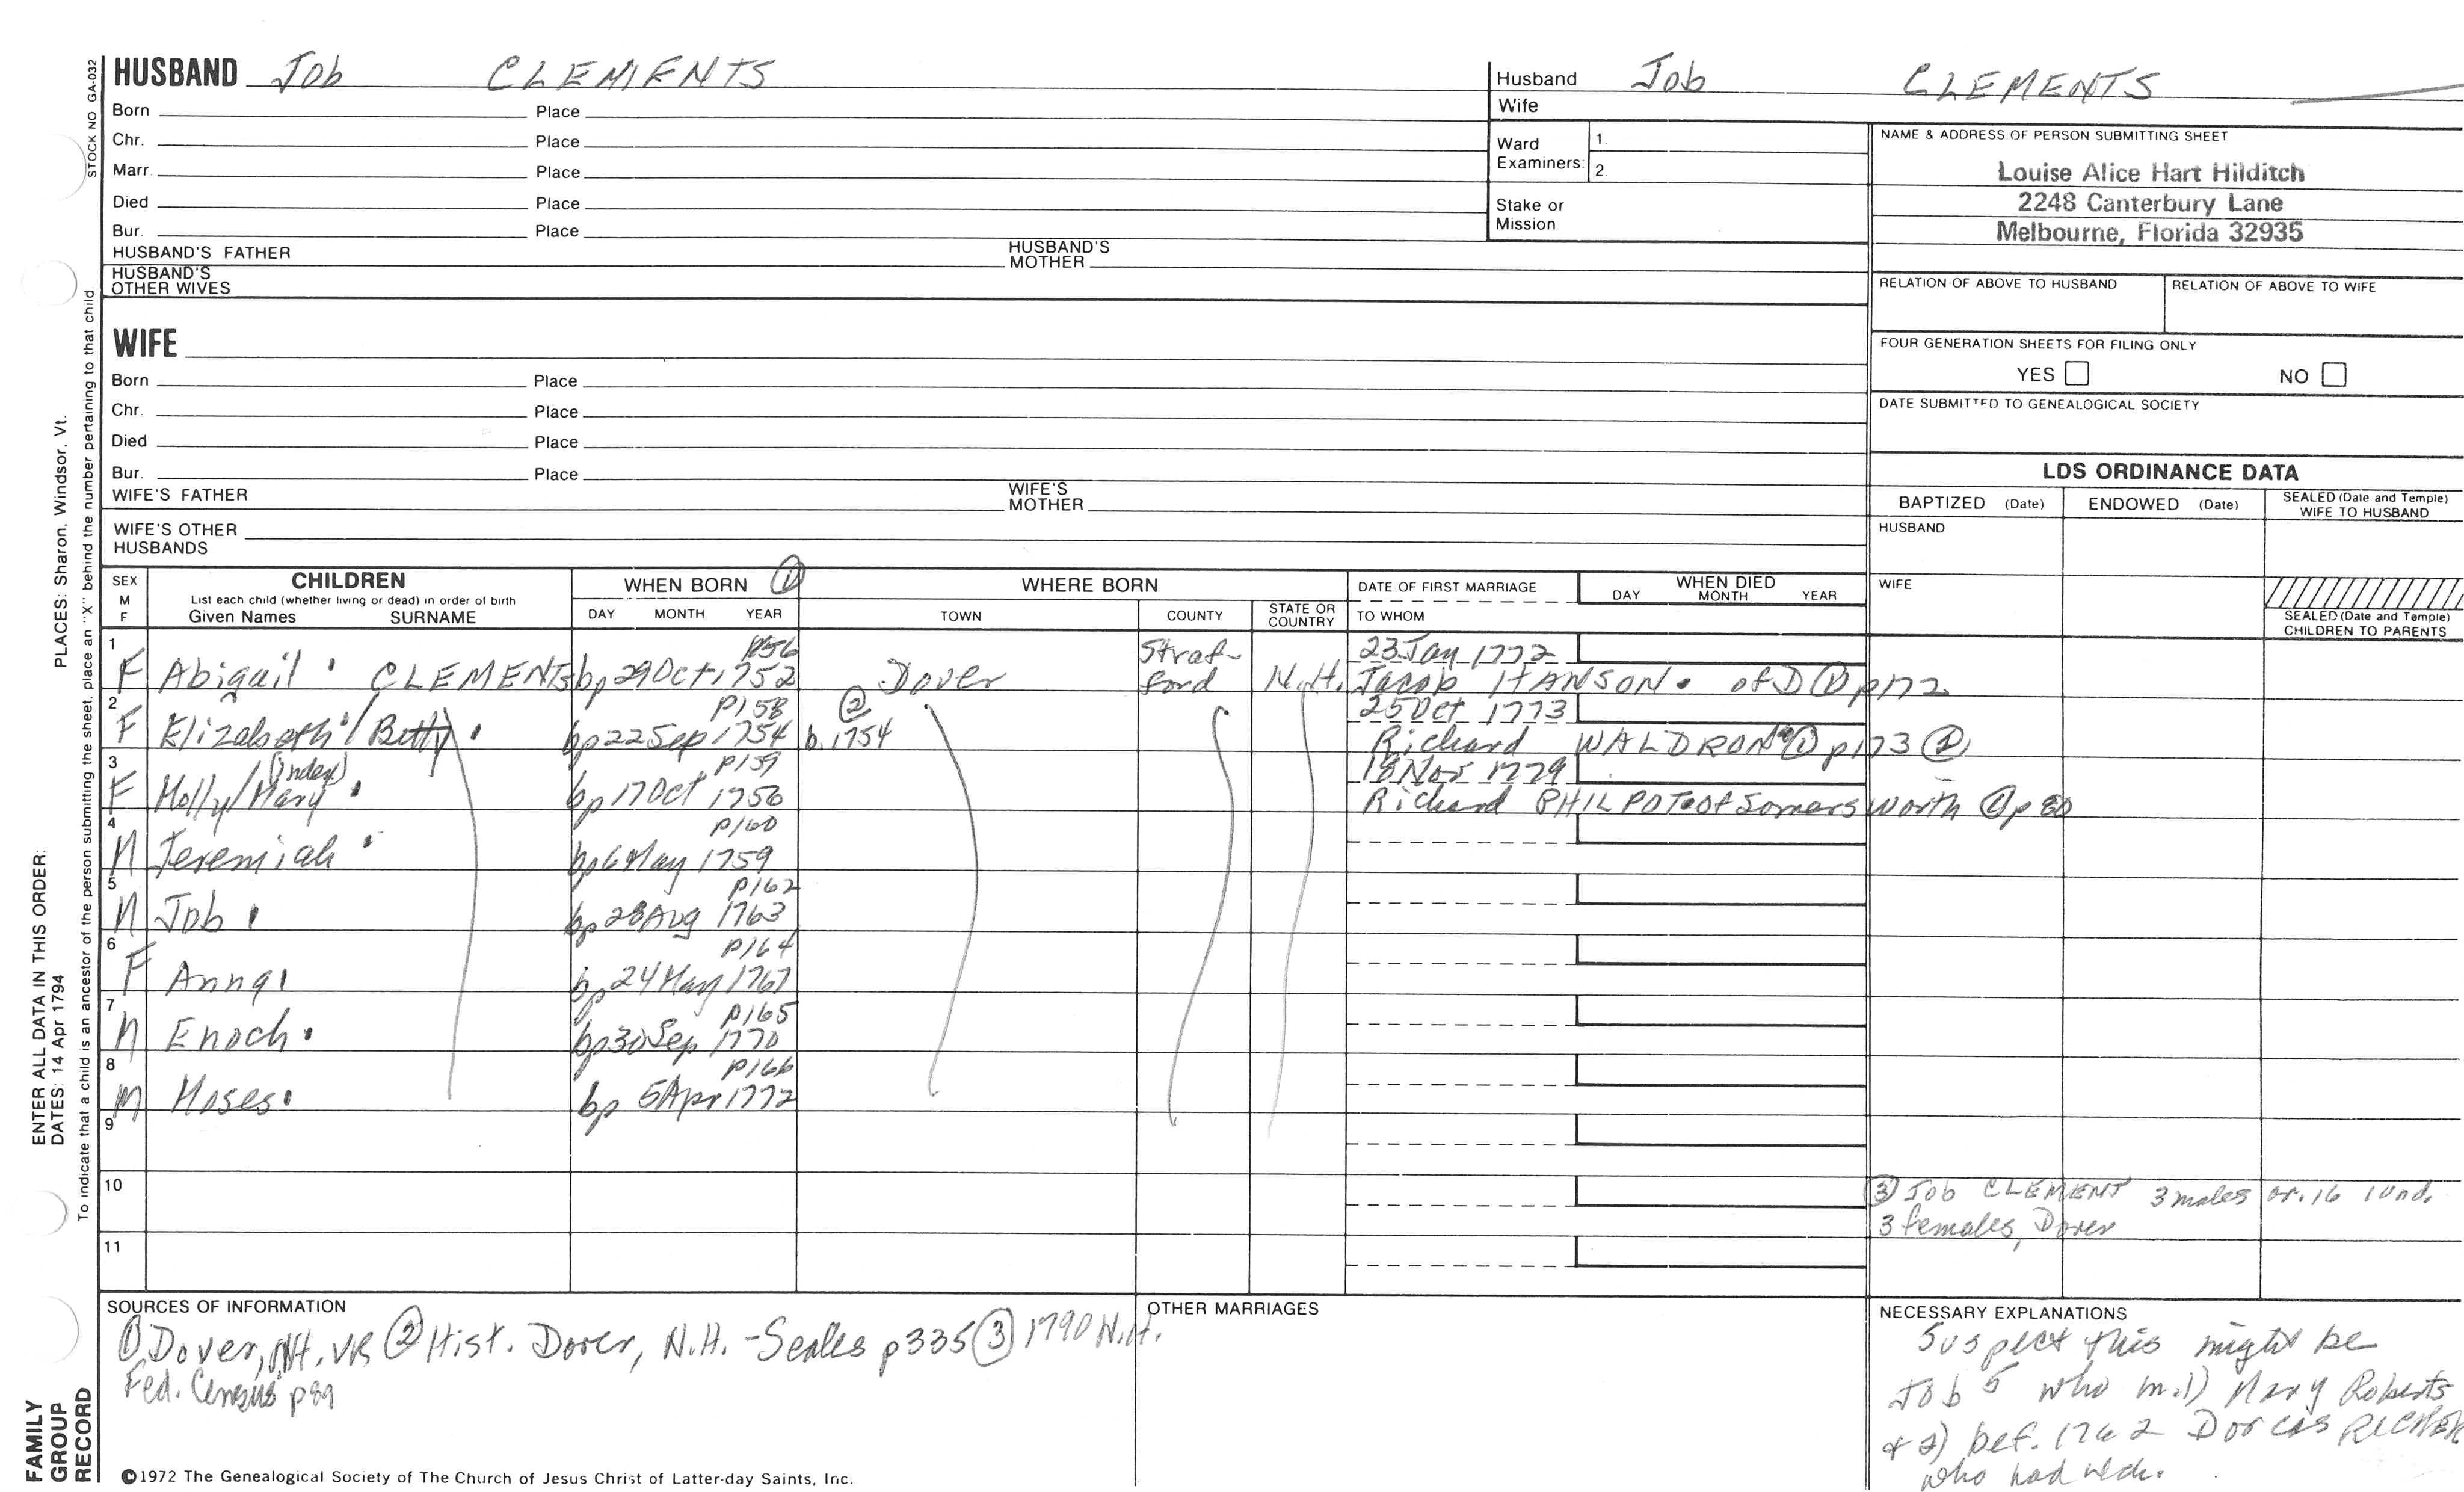 STOCK NO GA-032
HUSBAND Job CLEMENTS
Born Place
Chr. Place
Marr. Place
Died Place
Bur. Place
HUSBAND'S FATHER HUSBAND'S MOTHER
HUSBAND'S OTHER WIVES
WIFE
Born Place
Chr. Place
Died Place
Bur. Place
WIFE'S FATHER WIFE'S MOTHER
WIFE'S OTHER HUSBANDS
Husband Job CLEMENTS
Wife
Ward Examiners: 1.
2.
Stake or Mission
NAME & ADDRESS OF PERSON SUBMITTING SHEET
Louise Alice Hart Hilditch
2248 Canterbury Lane
Melbourne, Florida 32935
RELATION OF ABOVE TO HUSBAND RELATION OF ABOVE TO WIFE
FOUR GENERATION SHEETS FOR FILING ONLY
YES NO
DATE SUBMITTED TO GENEALOGICAL SOCIETY
LDS ORDINANCE DATA
BAPTIZED (Date) ENDOWED (Date) SEALED (Date and Temple) WIFE TO HUSBAND
HUSBAND
WIFE
SEALED (Date and Temple) CHILDREN TO PARENTS
SEX M F
CHILDREN
List each child (whether living or dead) in order of birth
Given Names SURNAME
WHEN BORN ①
DAY MONTH YEAR
WHERE BORN
TOWN COUNTY STATE OR COUNTRY
DATE OF FIRST MARRIAGE
TO WHOM
WHEN DIED
DAY MONTH YEAR
1 p156 Straf- 23 Jan 1772
F Abigail CLEMENTS bp 29 Oct 1752 Dover ford N.H. Jacob HANSON. of D ① p172
2 p158 ② 25 Oct 1773
F Elizabeth/Betty bp 22 Sep 1754 b. 1754 Richard WALDRON ① p173 ②
3 (index) p159 18 Nov 1779
F Molly/Mary bp 17 Oct 1756 Richard PHILPOT of Somersworth ① p 80
4 p160
M Jeremiah bp 6 May 1759
5 p162
M Job bp 28 Aug 1763
6 p164
F Anna bp 24 May 1767
7 p165
M Enoch bp 30 Sep 1770
8 p166
M Moses bp 5 Apr 1772
9
10
11
③ Job CLEMENT 3 males ov. 16 1 und.
3 females, Dover
SOURCES OF INFORMATION
① Dover, NH. VR ② Hist. Dover, N.H. - Scales p335 ③ 1790 N.H.
Fed. Census p89
OTHER MARRIAGES
NECESSARY EXPLANATIONS
Suspect this might be
Job 5 who m. 1) Mary Roberts
& 2) bef. 1762 Dorcas RICKER
who had
©1972 The Genealogical Society of The Church of Jesus Christ of Latter-day Saints, Inc.
FAMILY GROUP RECORD
ENTER ALL DATA IN THIS ORDER:
DATES: 14 Apr 1794 PLACES: Sharon, Windsor, Vt.
To indicate that a child is an ancestor of the person submitting the sheet, place an "X" behind the number pertaining to that child